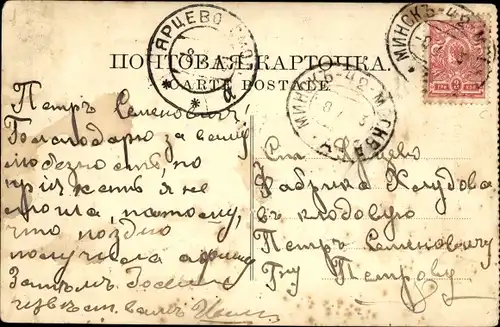 ПОЧТОВАЯ КАРТОЧКА.
CARTE POSTALE
ЯРЦЕВО
МИНСКЪ-42-МОСКВА
МИНСКЪ-42-М
Петръ Семеновичъ,
Благодарю за вашу
любезность, но
пріѣхать я не
могла, потому,
что поздно
получила
Затѣмъ
Ст. Ярцево
Фабрика Хлудова
въ кладовую
Петру Семеновичу
Гну Петрову